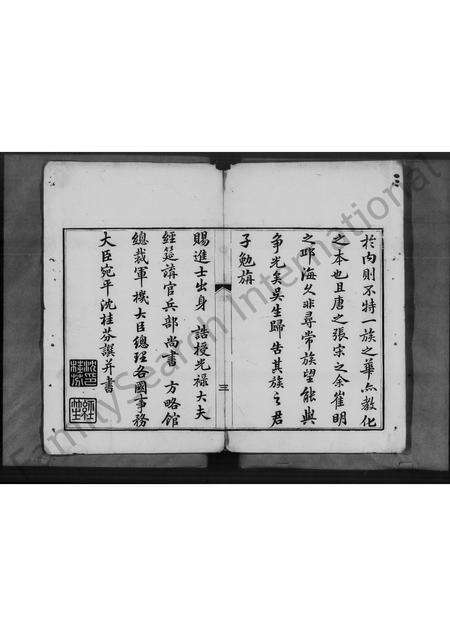 於內則不特一族之華亦教化
之本也且唐之張宋之余崔明
之邱海久非尋常族望能與
爭光矣吳生歸 告其族之君
子勉旃
賜進士出身 誥授光祿大夫
經筵講官兵部尚書 方略館
總裁軍機大臣總理各國事務
大臣宛平沈桂芬譔并書
三
沈桂芬印
FamilySearch International